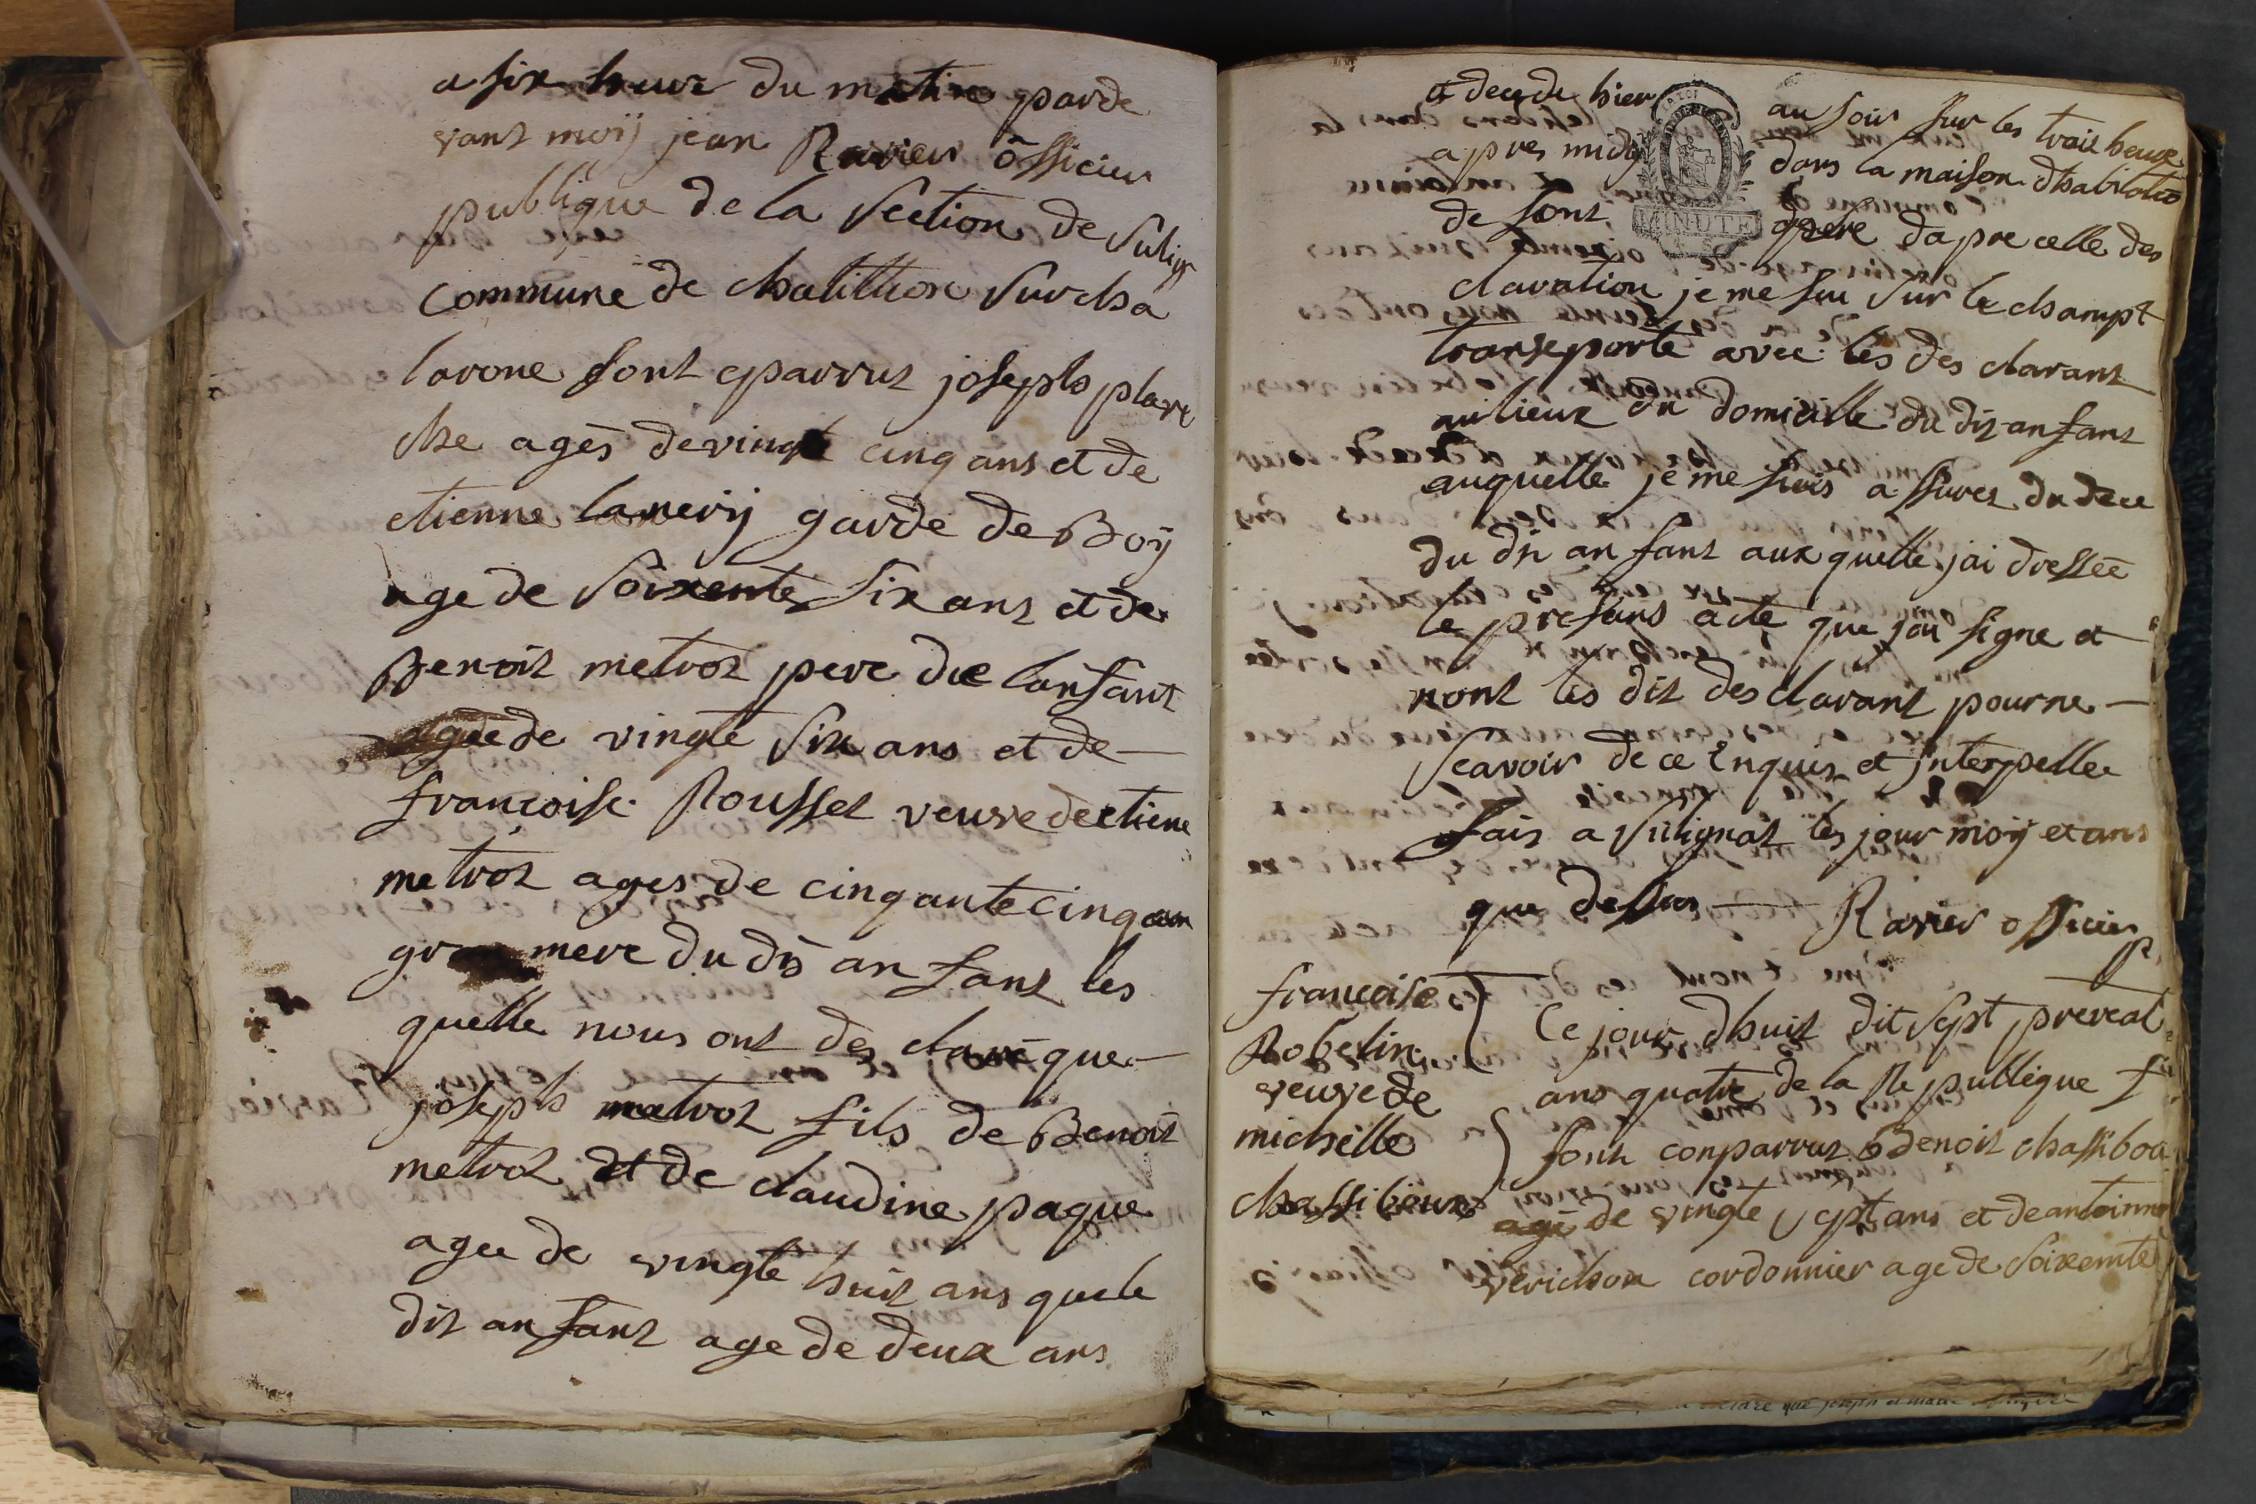 a six heure du matine parde
vant moij jean Ravier officier
publique de la section de Sulig
commune de chatillion sur cha
larone sont cparrut joseph plan
che agès de vingt cinq ans et de
etienne lanerij garde de Boij
age de soixente six ans et de
Benoit metrot pere de lanfant
agee de vingte six ans et de
francoise Rousset veuve de etiene
metrot ages de cinqante cinq an
gran mere du dit anfant les
quelle nous ont des claré que
joseph metrot fils de Benoit
metrot et de claudine paque
agee de vingte huit ans que le
dit anfant age de deux ans
a decede hier au soir sur les trois heure
apres midy dans la maison dhabitatio
de sont pere dapre celle des
claration je me sui sur le champt
transeporte avec les des clarant
au lieux du domicille du dit anfant
auquelle je me suis assurer du dece
du dit anfant aux quelle jai dressée
le presans acte que jai signe et
nont les dit des clarant pour ne
scavoir de ce Enquis et Interpelle
fait a Sulignat les jour moij et ans
que dessus Ravier officier
p.
francoise
Robelin
veuve de
michelle
chassiboux
Ce jour dhuit dit sept prereal
ans quatre de la Republique f
sont conparrut Benoit chassibou
agé de vingte sept ans et de antoinne
verichon cordonnier age de soixemte
MINUTE